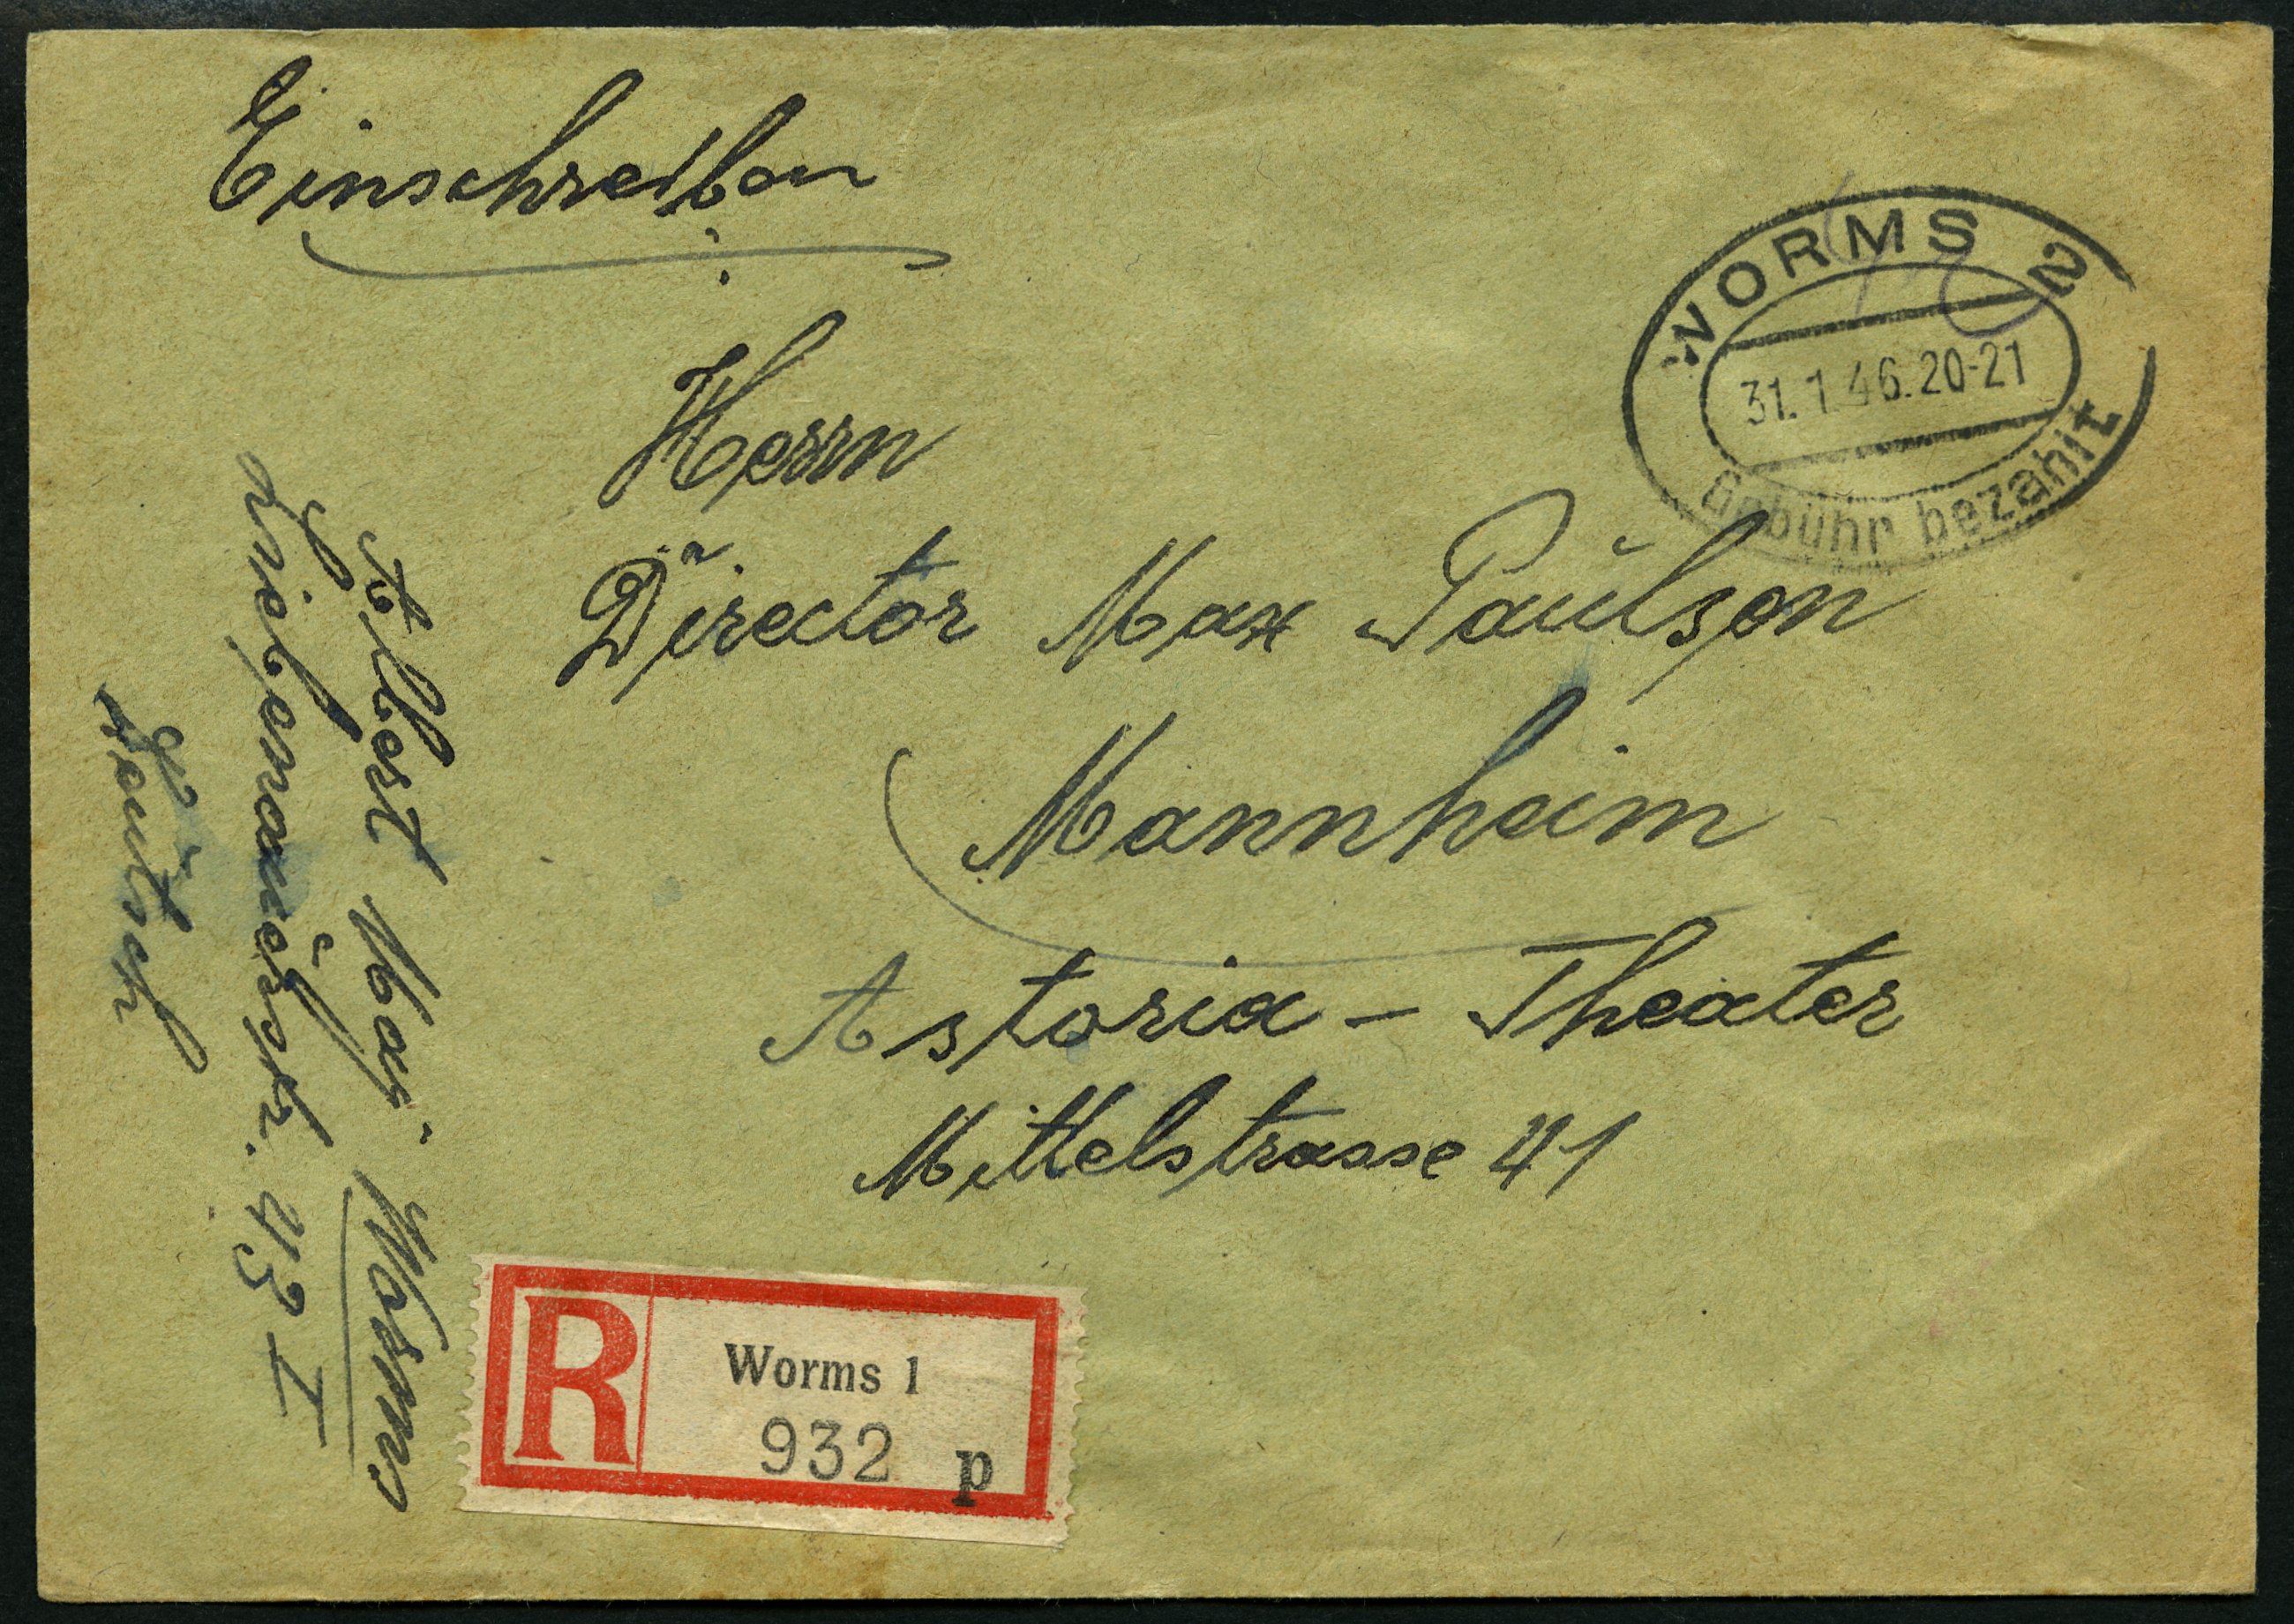 Einschreiben
WORMS 2
31.1.46.20-21
Gebühr bezahlt
Herrn
Director Max Paulson
Mannheim
Astoria - Theater
Mittelstrasse 41
Albert May. Worms
Liebenauerstr. 43 I
Deutsch
R
Worms 1
932 p